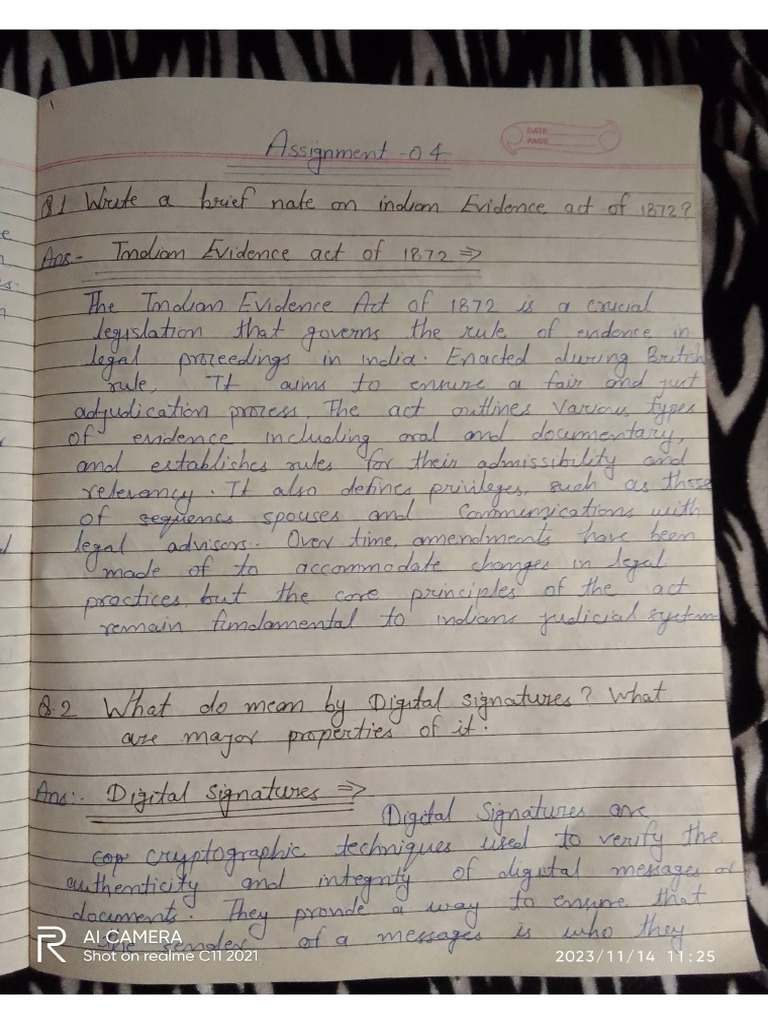 Assignment - 04
DATE
PAGE
Q.1 Write a brief note on indian Evidence act of 1872?
Ans.- Indian Evidence act of 1872 ⇒
The Indian Evidence Act of 1872 is a crucial
legislation that governs the rule of evidence in
legal proceedings in india. Enacted during British
rule, It aims to ensure a fair and just
adjudication process. The act outlines various types
of evidence including oral and documentary,
and establishes rules for their admissibility and
relevancy. It also defines privileges, such as those
of spouses and communications with
legal advisors. Over time, amendments have been
made of to accommodate changes in legal
practices, but the core principles of the act
remain fundamental to indians judicial system
Q.2 What do mean by Digital signatures? What
are major properties of it.
Ans:- Digital Signatures ⇒
Digital Signatures are
cryptographic techniques used to verify the
authenticity and integrity of digital messages or
documents. They provide a way to ensure that
the sender of a messages is who they
R AI CAMERA
Shot on realme C11 2021
2023/11/14 11:25